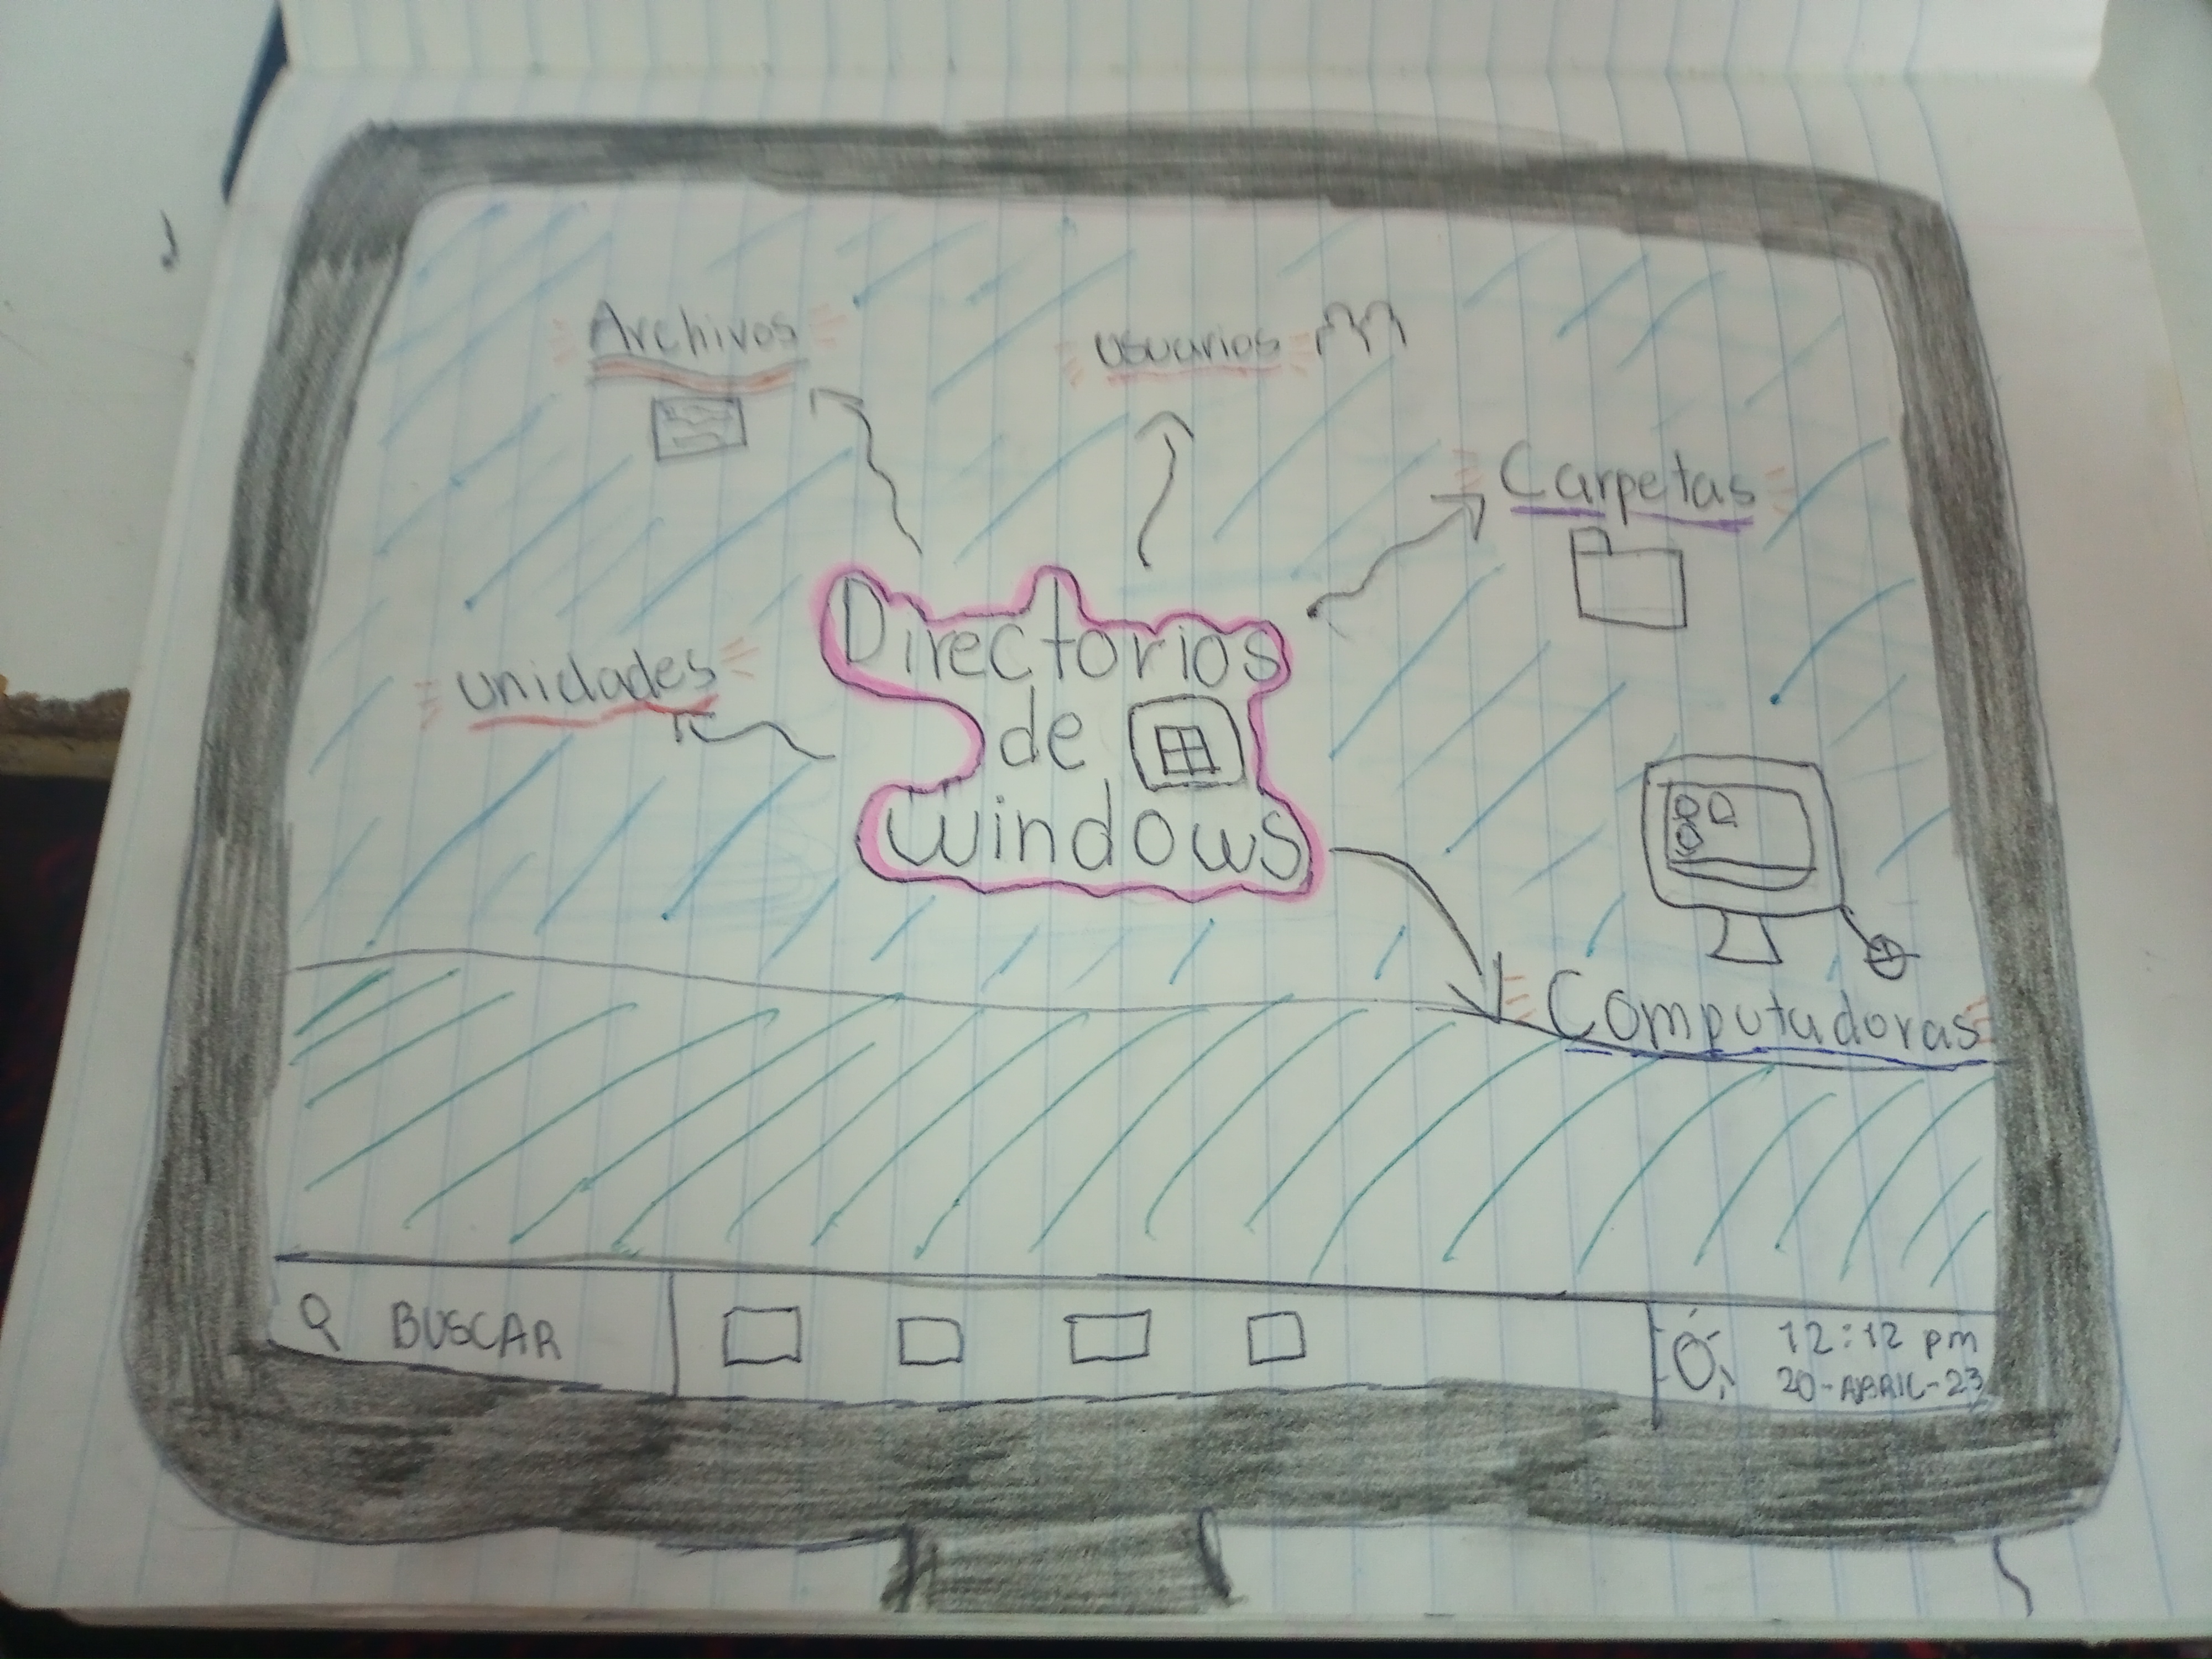 Archivos
usuarios
Carpetas
unidades
Directorios
de
windows
Computadoras
BUSCAR
12:12 pm
20-ABRIL-23